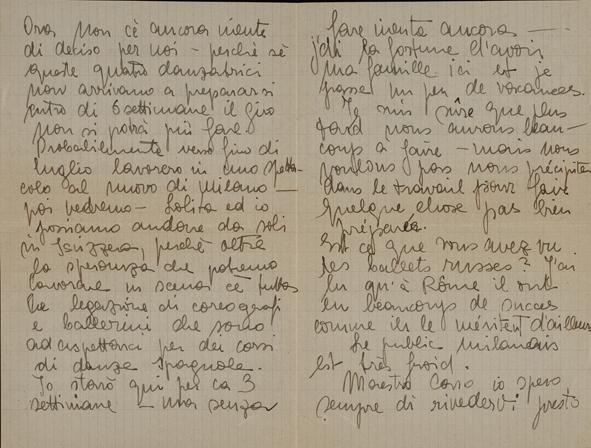 Ora non c'è ancora niente
di deciso per noi – perchè se
queste quattro danzatrici
non arrivano a prepararsi
entro di 6 settimane il giro
non si potrà più fare.
Probabilmente verso fino di
luglio lavorerò in uno spetta-
colo al nuovo di Milano –
poi vedremo – Lolita ed io
possiamo andare da soli
in Isvizzera, perchè oltre
la speranza che potremo
lavorare in scena c'è tutta
la legazione di coreografi
e ballerini che sono
ad aspettarci per dei corsi
di danza spagnola.
Io starò qui per ca 3
settimane – ma senza
fare niente ancora –
j'ai la fortune d'avoir
ma famille ici et je
passe un peu de vacances.
Je suis sûre que plus
tard nous aurons beau-
coup a faire – mais nous
voulons pas nous précipiter
dans le travail pour faire
quelque chose pas bien
préparée.
Est ce que vous avez vu
les ballets russes? J'ai
lu qu'à Rôme il ont
eu beaucoup de succes
comme ils le méritent d'ailleurs
Le public milanais
est très froid.
Maestro Caro io spero
sempre di rivedervi presto